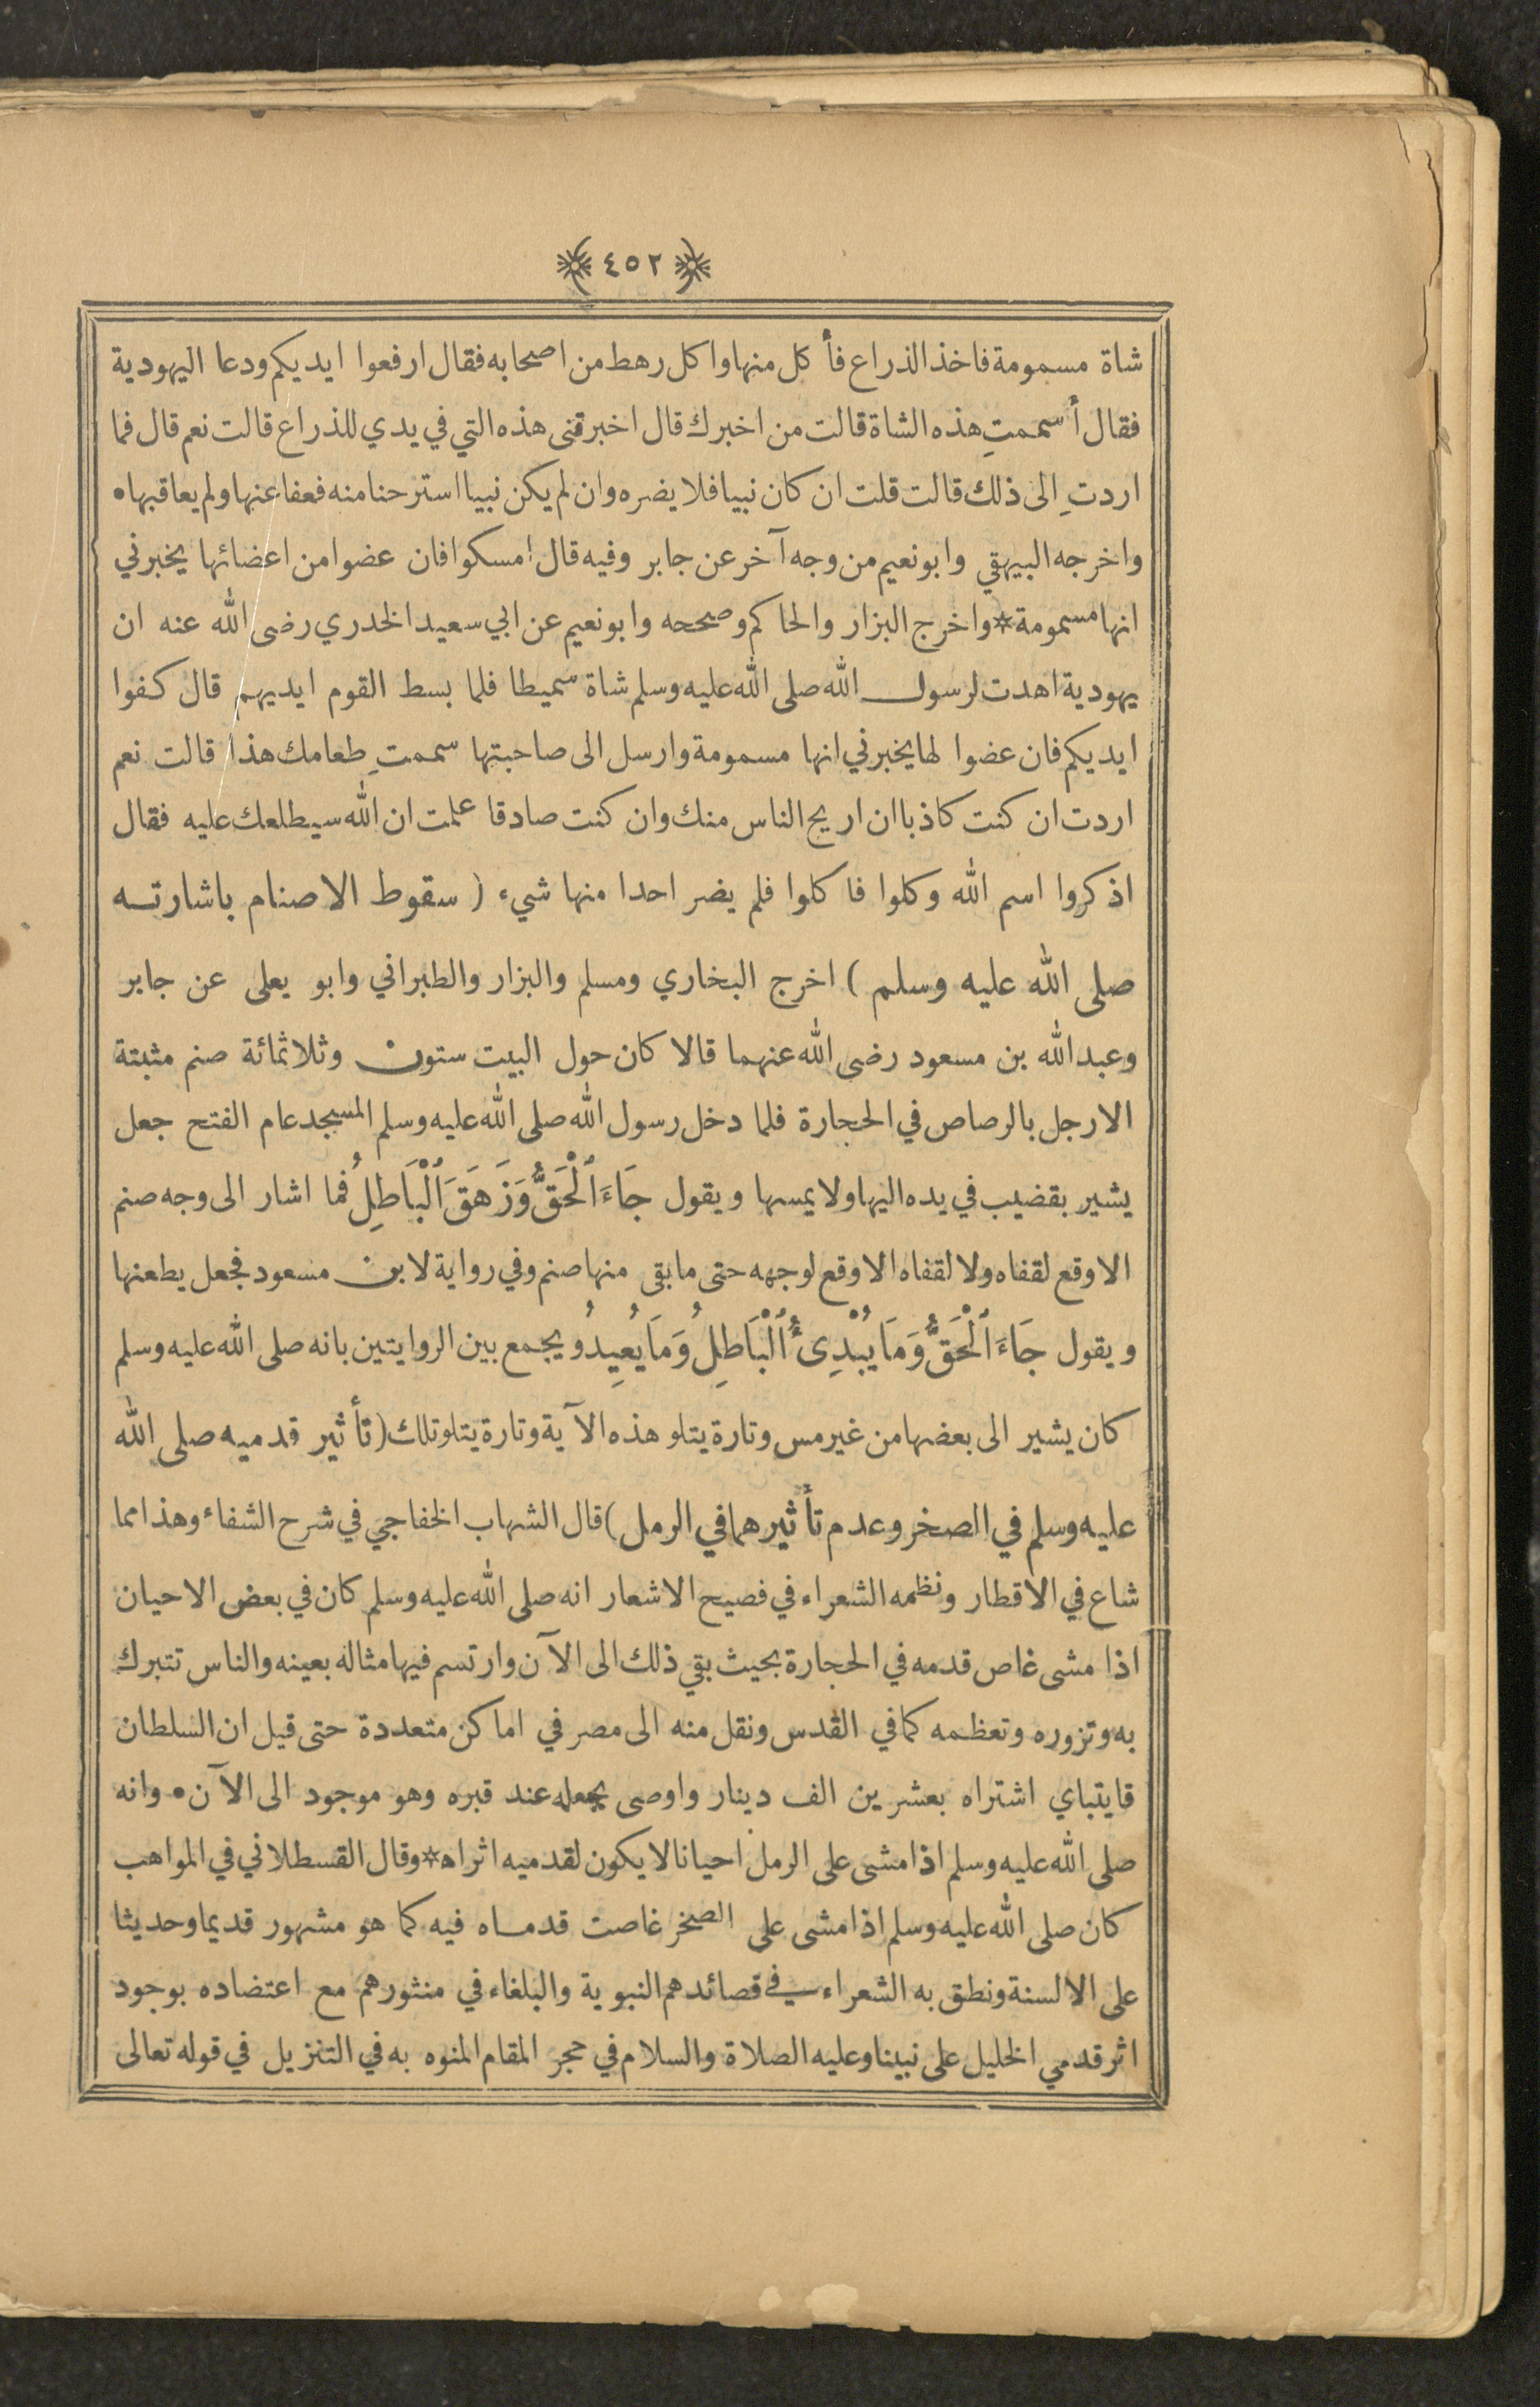 ٤٥٢
شاة مسمومة فاخذ الذراع فأكل منها واكل رهط من اصحابه فقال ارفعوا ايديكم ودعا اليهودية
فقال أسممتِ هذه الشاة قالت من اخبرك قال اخبرتنى هذه التي في يدي للذراع قالت نعم قال فما
اردتِ الى ذلك قالت قلت ان كان نبيا فلا يضره وان لم يكن نبيا استرحنا منه فعفا عنها ولم يعاقبها•
واخرجه البيهقي وابونعيم من وجه آخر عن جابر وفيه قال امسكوا فان عضوا من اعضائها يخبرني
انها مسمومة * واخرج البزار والحاكم وصححه وابونعيم عن ابي سعيد الخدري رضى الله عنه ان
يهودية اهدت لرسول الله صلى الله عليه وسلم شاة سميطا فلما بسط القوم ايديهم قال كفوا
ايديكم فان عضوا لها يخبرني انها مسمومة وارسل الى صاحبتها سممتِ طعامك هذا قالت نعم
اردت ان كنت كاذبا ان اريح الناس منك وان كنت صادقا علمت ان الله سيطلعك عليه فقال
اذكروا اسم الله وكلوا فاكلوا فلم يضر احدا منها شيء ( سقوط الاصنام باشارته
صلى الله عليه وسلم ) اخرج البخاري ومسلم والبزار والطبراني وابو يعلى عن جابر
وعبدالله بن مسعود رضى الله عنهما قالا كان حول البيت ستون وثلاثمائة صنم مثبتة
الارجل بالرصاص في الحجارة فلما دخل رسول الله صلى الله عليه وسلم المسجد عام الفتح جعل
يشير بقضيب في يده اليها ولا يمسها ويقول جَاءَ ٱلْحَقُّ وَزَهَقَ ٱلْبَاطِلُ فما اشار الى وجه صنم
الا وقع لقفاه ولا لقفاه الا وقع لوجهه حتى ما بقى منها صنم وفي رواية لابن مسعود فجعل يطعنها
ويقول جَاءَ ٱلْحَقُّ وَمَا يُبْدِئُ ٱلْبَاطِلُ وَمَا يُعِيدُ ويجمع بين الروايتين بانه صلى الله عليه وسلم
كان يشير الى بعضها من غير مس وتارة يتلو هذه الآية وتارة يتلو تلك ( تأثير قدميه صلى الله
عليه وسلم في الصخر وعدم تأثيرهما في الرمل ) قال الشهاب الخفاجي في شرح الشفاء وهذا مما
شاع في الاقطار ونظمه الشعراء في فصيح الاشعار انه صلى الله عليه وسلم كان في بعض الاحيان
اذا مشى غاص قدمه في الحجارة بحيث بقي ذلك الى الآن وارتسم فيها مثاله بعينه والناس تتبرك
به وتزوره وتعظمه كما في القدس ونقل منه الى مصر في اماكن متعددة حتى قيل ان السلطان
قايتباي اشتراه بعشرين الف دينار واوصى بجعله عند قبره وهو موجود الى الآن• وانه
صلى الله عليه وسلم اذا مشى على الرمل احيانا لا يكون لقدميه اثر اه * وقال القسطلاني في المواهب
كان صلى الله عليه وسلم اذا مشى على الصخر غاصت قدماه فيه كما هو مشهور قديما وحديثا
على الالسنة ونطق به الشعراء في قصائدهم النبوية والبلغاء في منثورهم مع اعتضاده بوجود
اثر قدمي الخليل على نبينا وعليه الصلاة والسلام في حجر المقام المنوه به في التنزيل في قوله تعالى